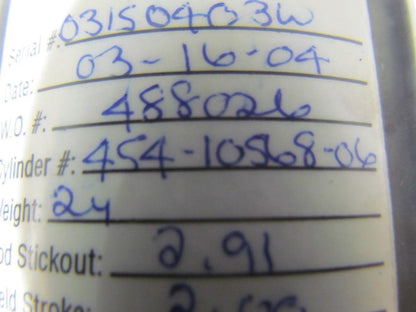 Serial #: 03150403W
Date: 03-16-04
W.O. #: 488026
Cylinder #: 454-10568-06
Weight: 24
od Stickout: 2.91
eld Stroke: